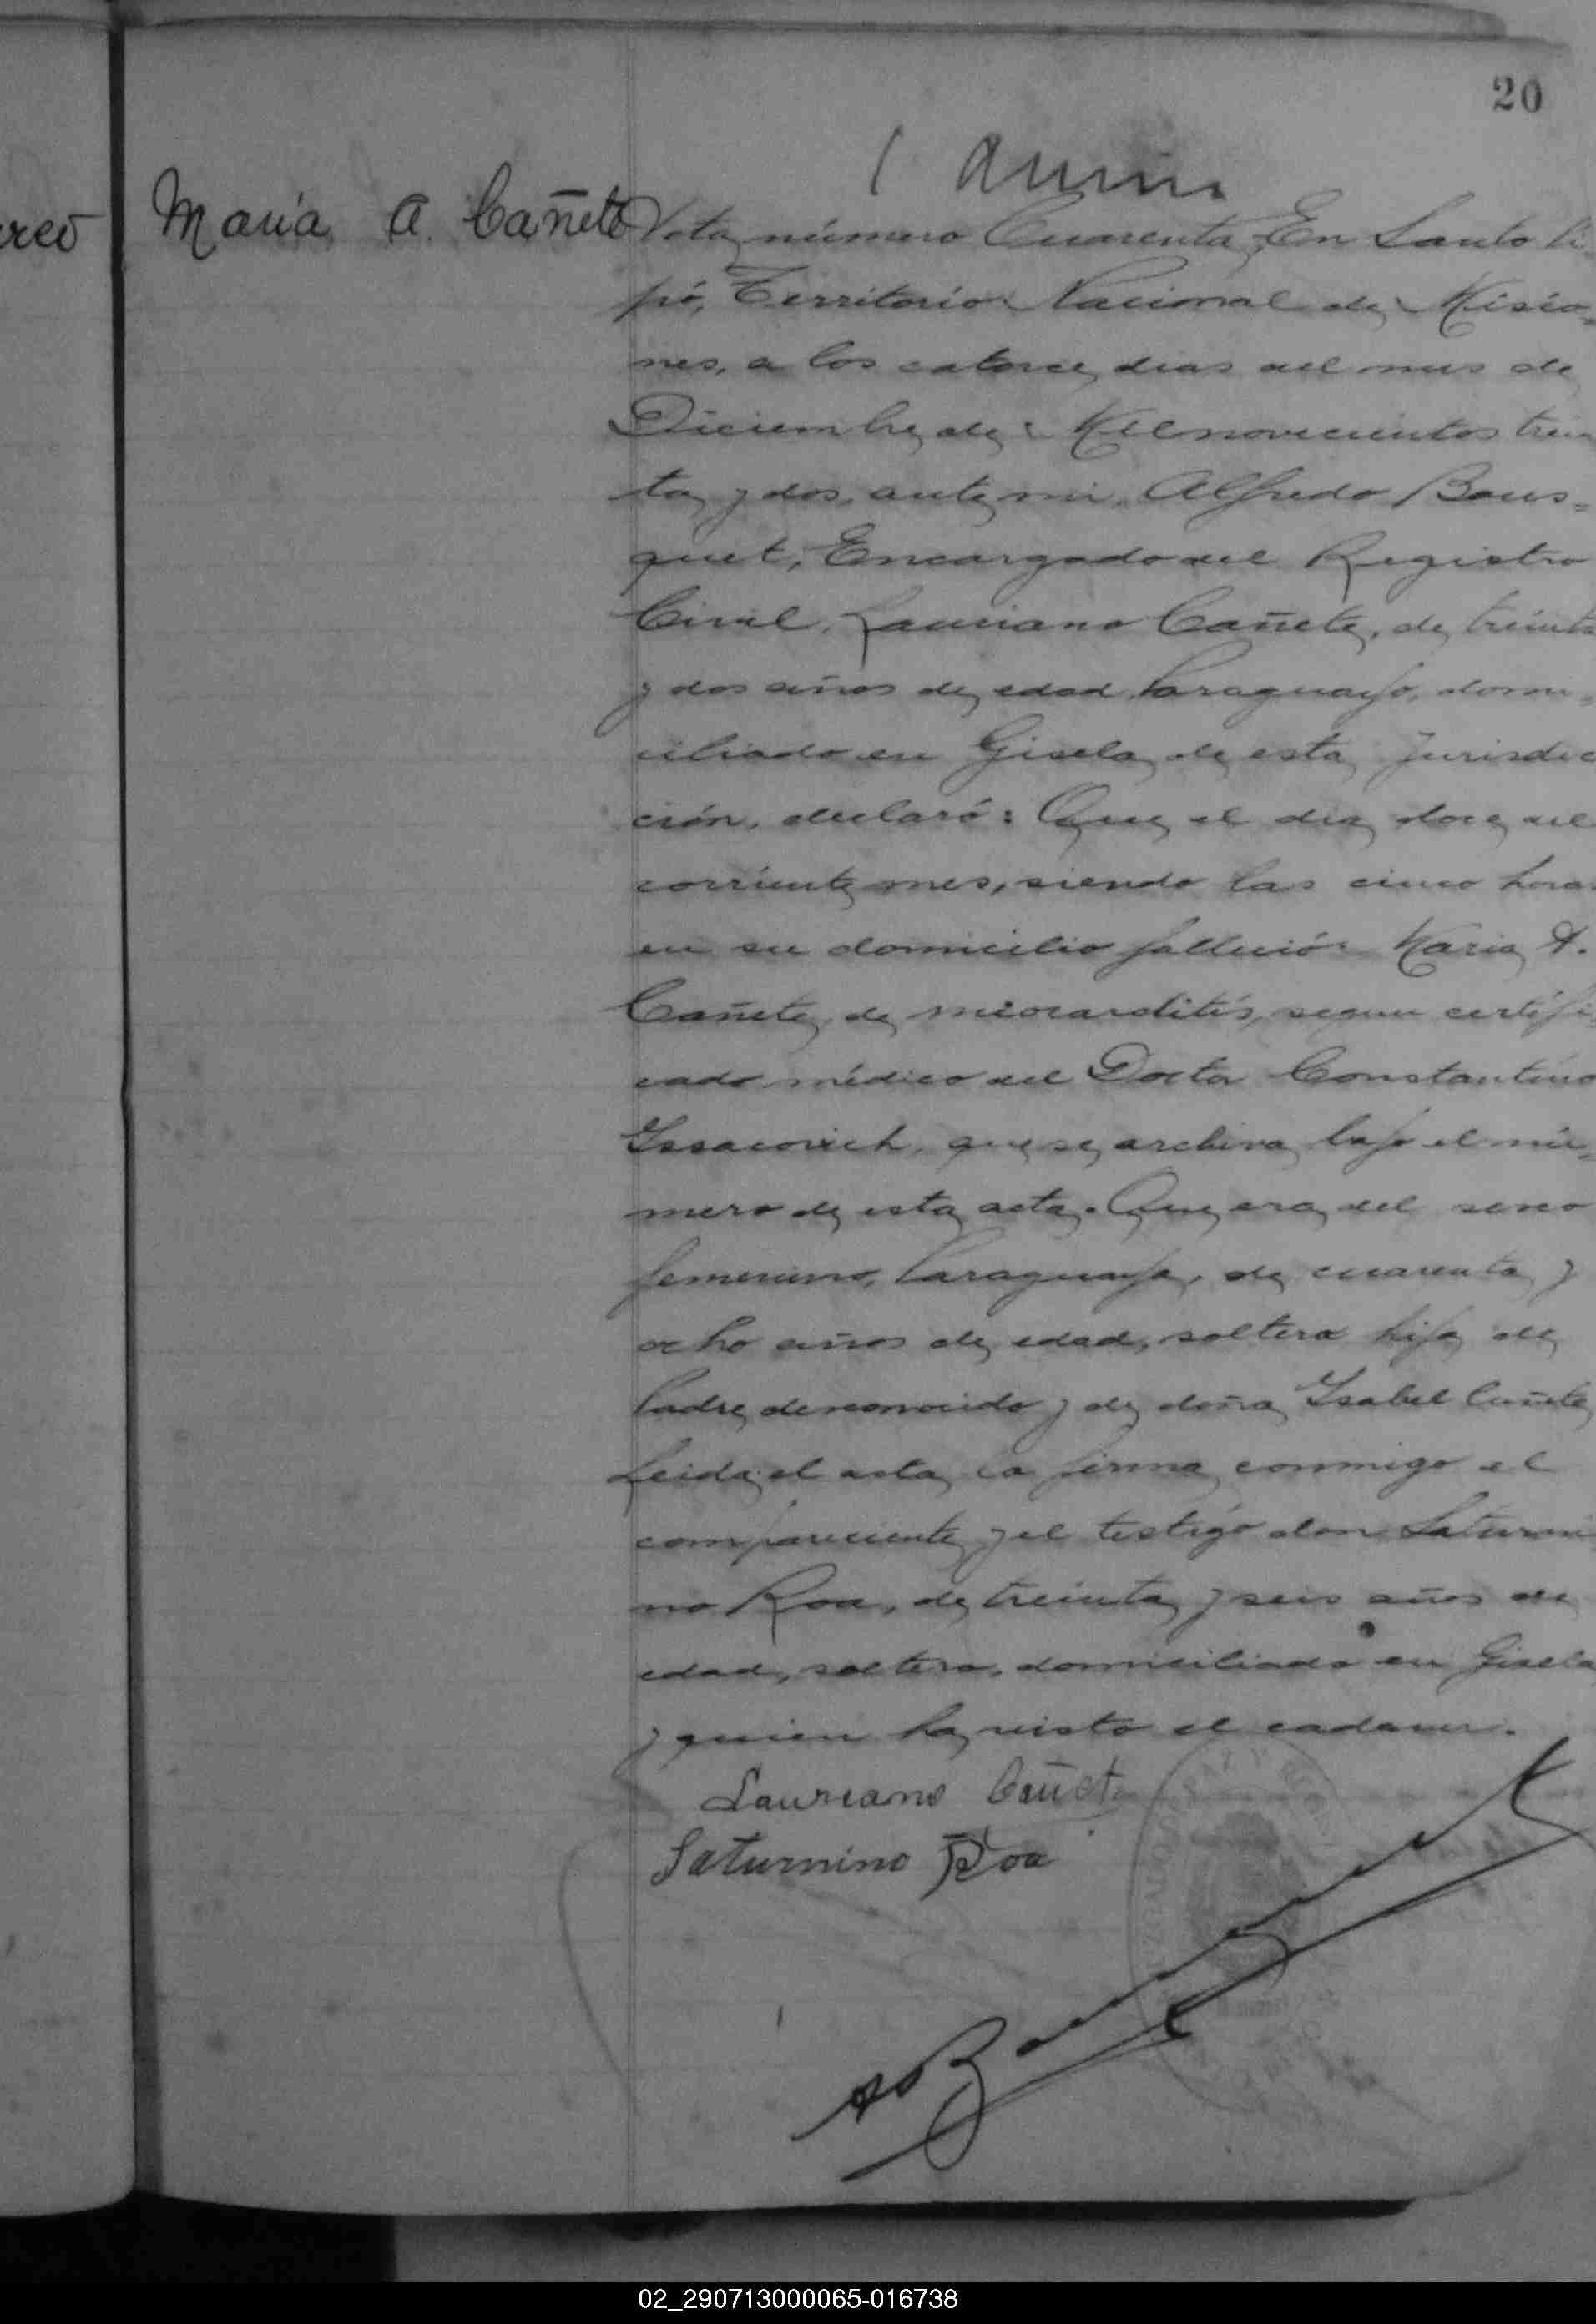 20
María A. Cañete
Acta número Cuarenta. En Santo Pi
pó, Territorio Nacional de Misio=
nes, a los catorce dias del mes de
Diciembre de Mil novecientos trein
ta y dos, ante mi, Alfredo Bous=
quet, Encargado del Registro
Civil, Lauriano Cañete, de treinta
y dos años de edad, Paraguayo, domi=
ciliado en Gisela de esta Jurisdic
ción, declaró: Que el dia doce del
corriente mes, siendo las cinco horas
en su domicilio falleció Maria A.
Cañete, de miocarditis, segun certifi
cado médico del Doctor Constantino
Issacovich, que se archiva bajo el nú=
mero de esta acta. Que era del sexo
femenino, Paraguaya, de cuarenta y
ocho años de edad, soltera hija de
Padre desconocido y de doña Ysabel Cañete
Leida el acta la firma conmigo el
compareciente y el testigo don Saturni
no Roa, de treinta y seis años de
edad, soltero, domiciliado en Gisela
y quien ha visto el cadaver.
Laureano Cañete
Saturnino Roa
02_290713000065-016738